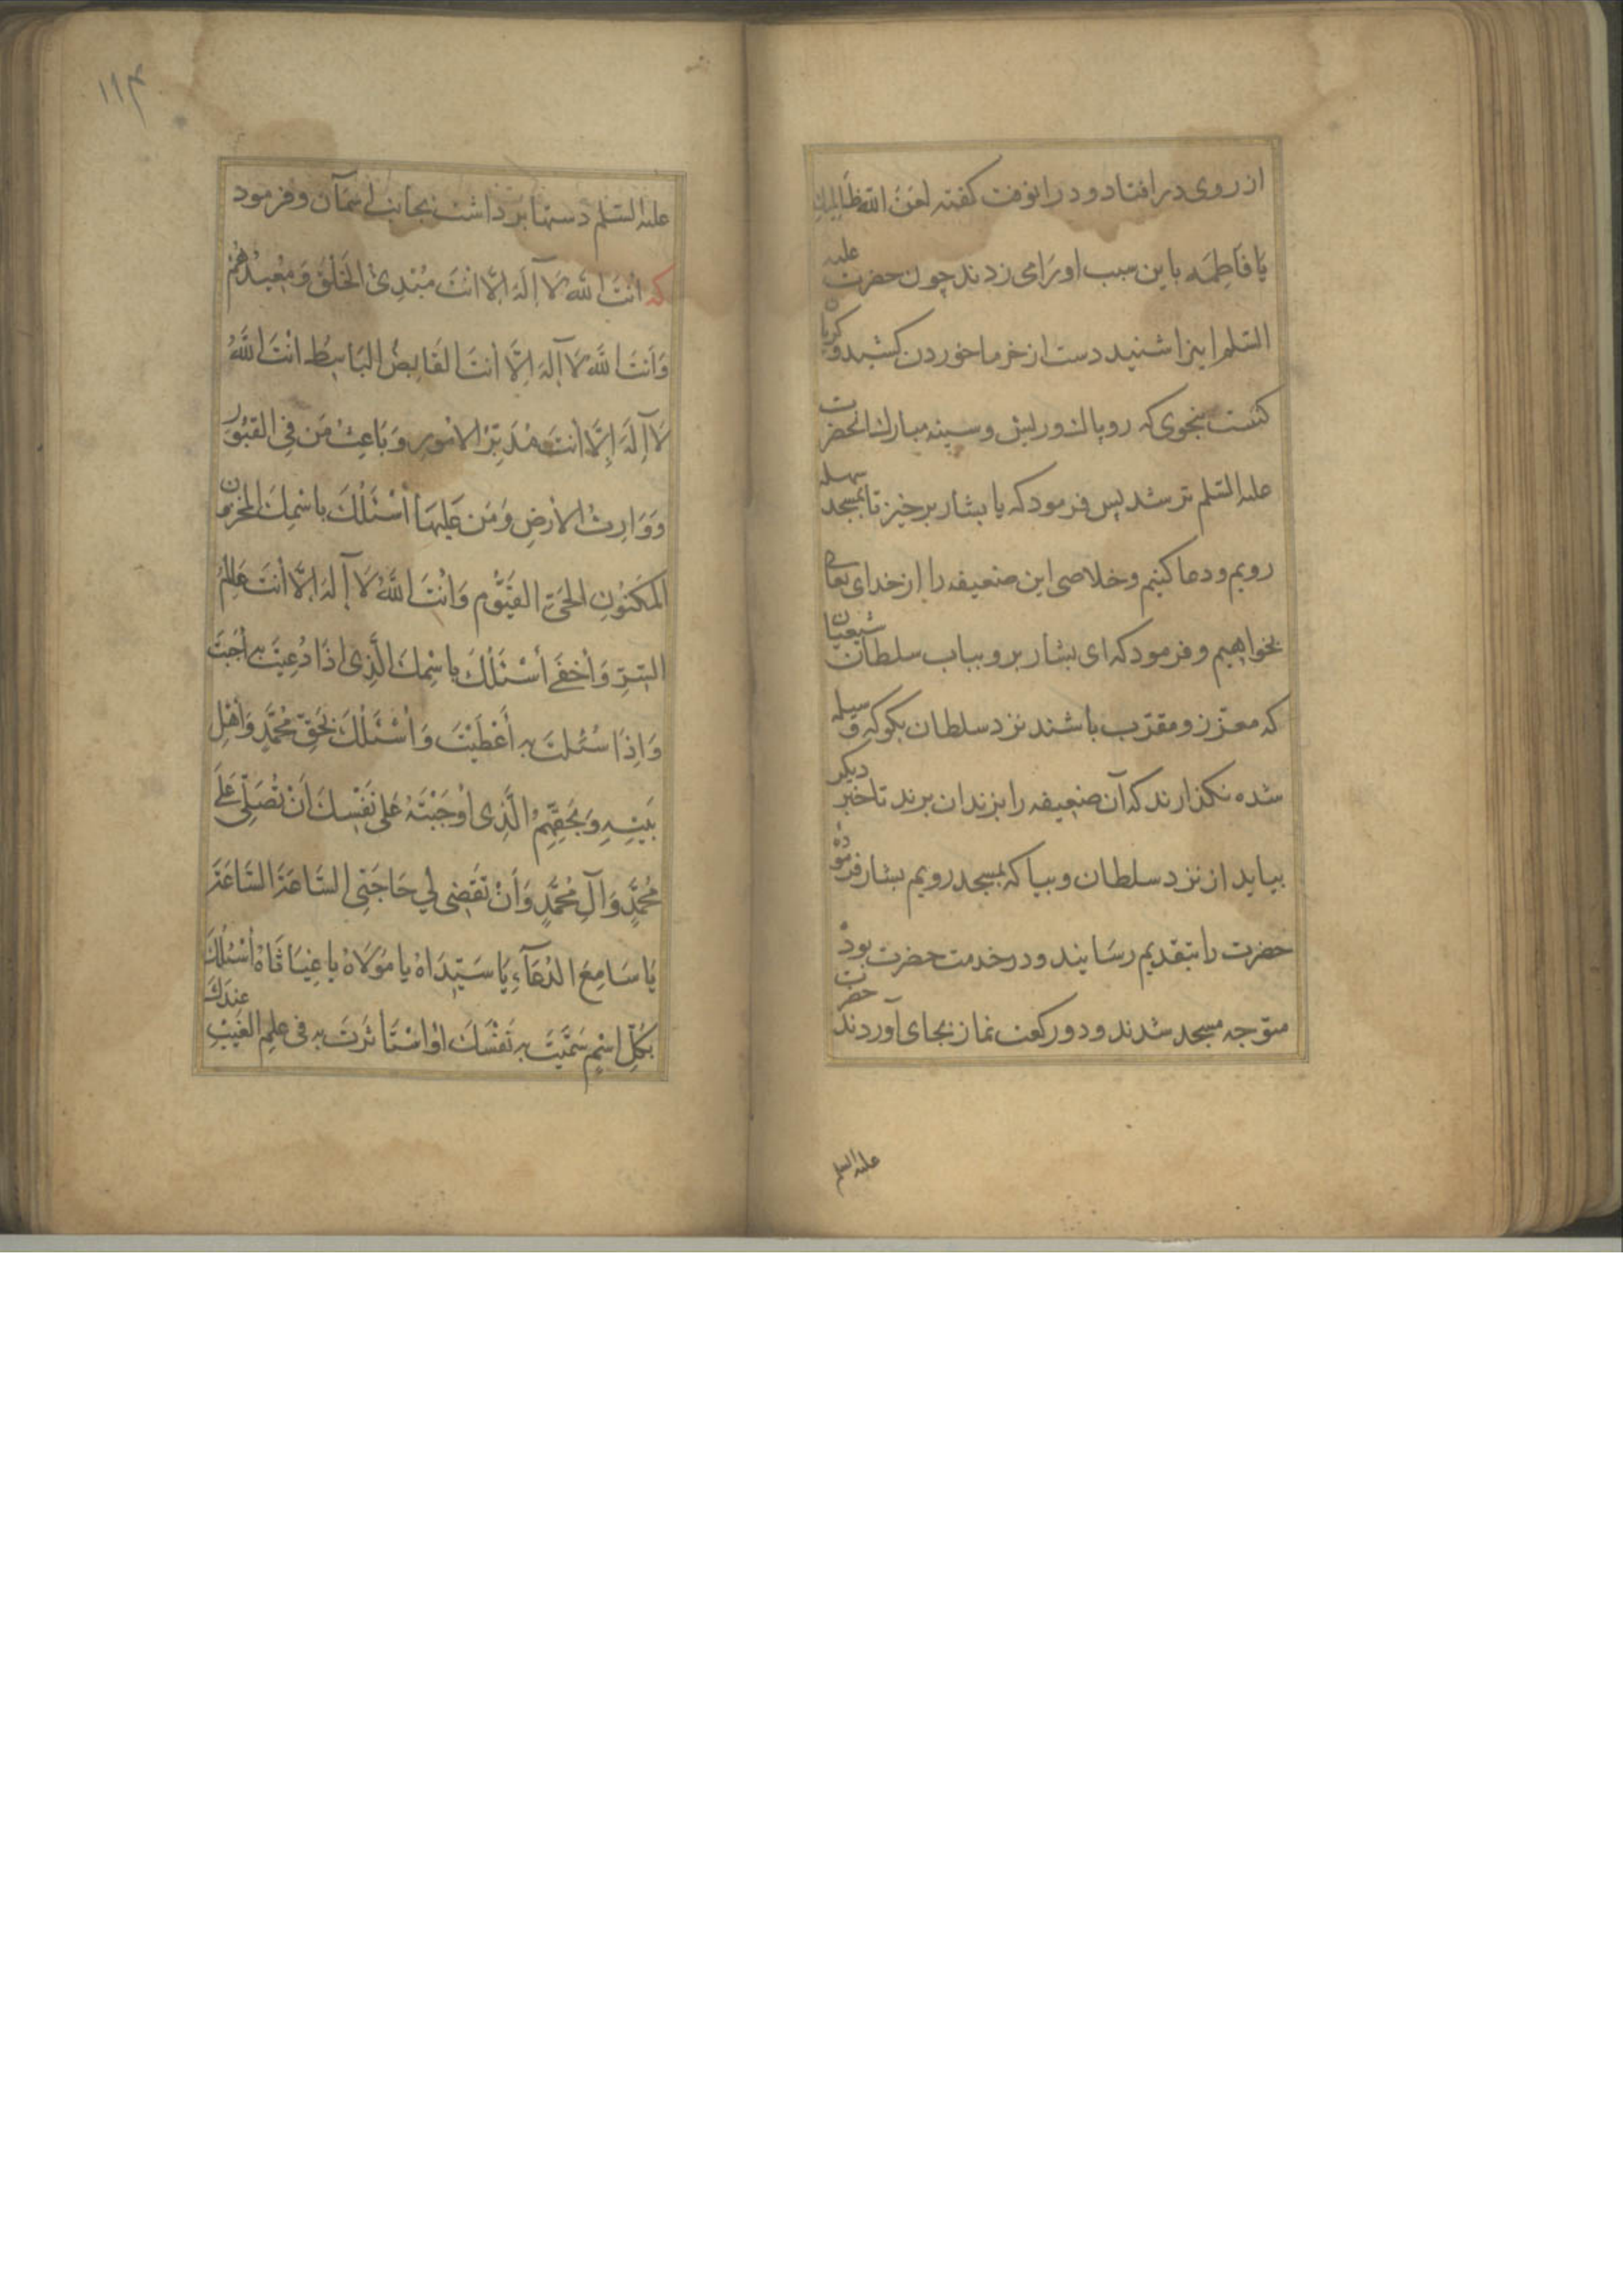 از روی در افتاد و در انوقت کفته لعن الله ظالمیك
یا فاطمه باین سبب او را می زدند چون حضرت علیه
السّلم اینرا شنید دست از خرما خوردن کشید و کریان
کشت بنحوی که روپاك و ریش و سینه مبارك انحضرت
علیه السّلم تر شد پس فرمود که یا بشار برخیز تا بمسجد سهله
رویم و دعا کنیم و خلاصی این ضعیفه را از خدای تعالی
بخواهیم و فرمود که ای بشار برو بباب سلطان شیعیان
که معزّز و مقرّب باشند نزد سلطان بکو که وسیله
شده نکذارند که آن ضعیفه را بزندان برند تا خبر دیکر
بیاید از نزد سلطان و بیا که بمسجد رویم بشار فرموده
حضرت را بتقدیم رسانید و در خدمت حضرت بود
متوّجه مسجد شدند و دو رکعت نماز بجای آوردند حضرت
علیه السلم
۱۱۴
علیه السّلم دستها برداشت بجانب اسمآن و فرمود
که انْتَ اللّه لَا آِلَهَ اِلَّا انْتَ مُبْدِئُ الخَلْقِ وَ مُعِیدُهُمْ
وَ اَنْتَ اللّه لَا آِلَهَ اِلَّا اَنْتَ القَابِضُ البَاسِطُ انْتَ اللّهُ
لَا آِلَهَ اِلَّا اَنْتَ مُدَبِّرُ الامُورِ وَ بَاعِثُ مَن فِی القبُوُرِ
وَ وَارِثُ الارْضِ وَ مَن عَلَیهَا اَسْئَلُكَ بِاسْمِكَ المَخْزُونِ
المَکنُوُنِ الحَیِّ القَیُّوم وَ اَنْتَ اللّهُ لَا آِلَهَ اِلَّا اَنْتَ عَالِمُ
السِّرِّ وَ اَخفَی اَسْئَلُكَ بِاسْمِكَ الَّذِی اِذَا دُعِیْتَ بِهِ اَجَبْتَ
وَ اِذَا سُئِلْتَ بِهِ اَعْطَیْتَ وَ اَسْئَلُكَ بِحَقِّ مُحَمَّدٍ وَ اَهْلِ
بَیْتِهِ وَ بِحَقِّهِمْ الَّذِی اَوْجَبْتَهُ عَلَی نَفْسِكَ اَنْ تُصَلِّی عَلَی
مُحَمَّدٍ وَ آلِ مُحَمَّدٍ وَ اَنْ تَقضِی لِی حَاجَتِی السَّاعَةَ السَّاعَةَ
یَا سَامِعَ الدُّعَآءِ یَا سَیِّدَاهُ یَا مَوْلَاهُ یَا غِیَاثَاهُ اَسْئَلُكَ
بِکُلِّ اسْمٍ سَمَّیْتَ بِهِ نَفْسَكَ اَوِ اسْتَاثَرْتَ بِهِ فِی عِلمِ الغَیْبِ عِندَكَ